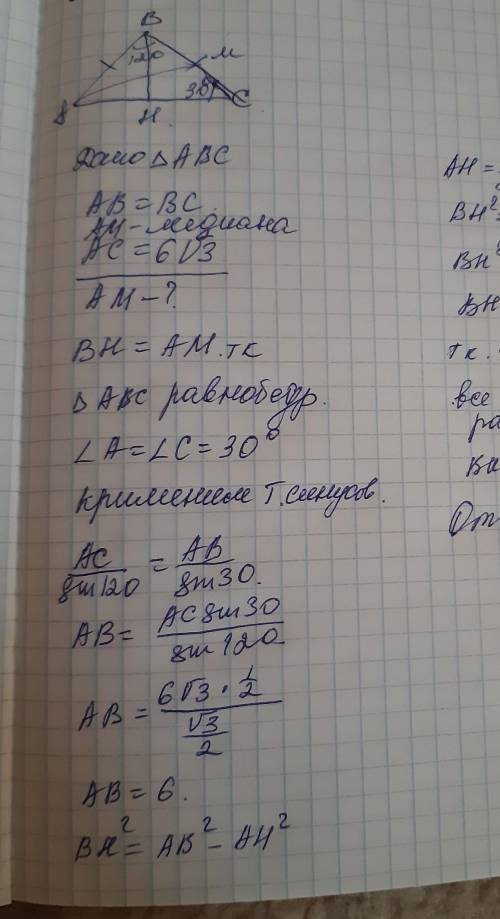 B
120
M
30°
A
H
C
Дано △ABC
AB = BC.
AM - медиана
AC = 6√3
AM - ?
BH = AM. тк
△ABC равнобедр.
∠A = ∠C = 30°
применим т. синусов.
AC/sin120 = AB/sin30.
AB = ACsin30/sin120
AB = (6√3 · 1/2)/(√3/2)
AB = 6.
BH² = AB² - AH²
AH =
BH²
BH²
BH
тк.
все
ра
BH
От